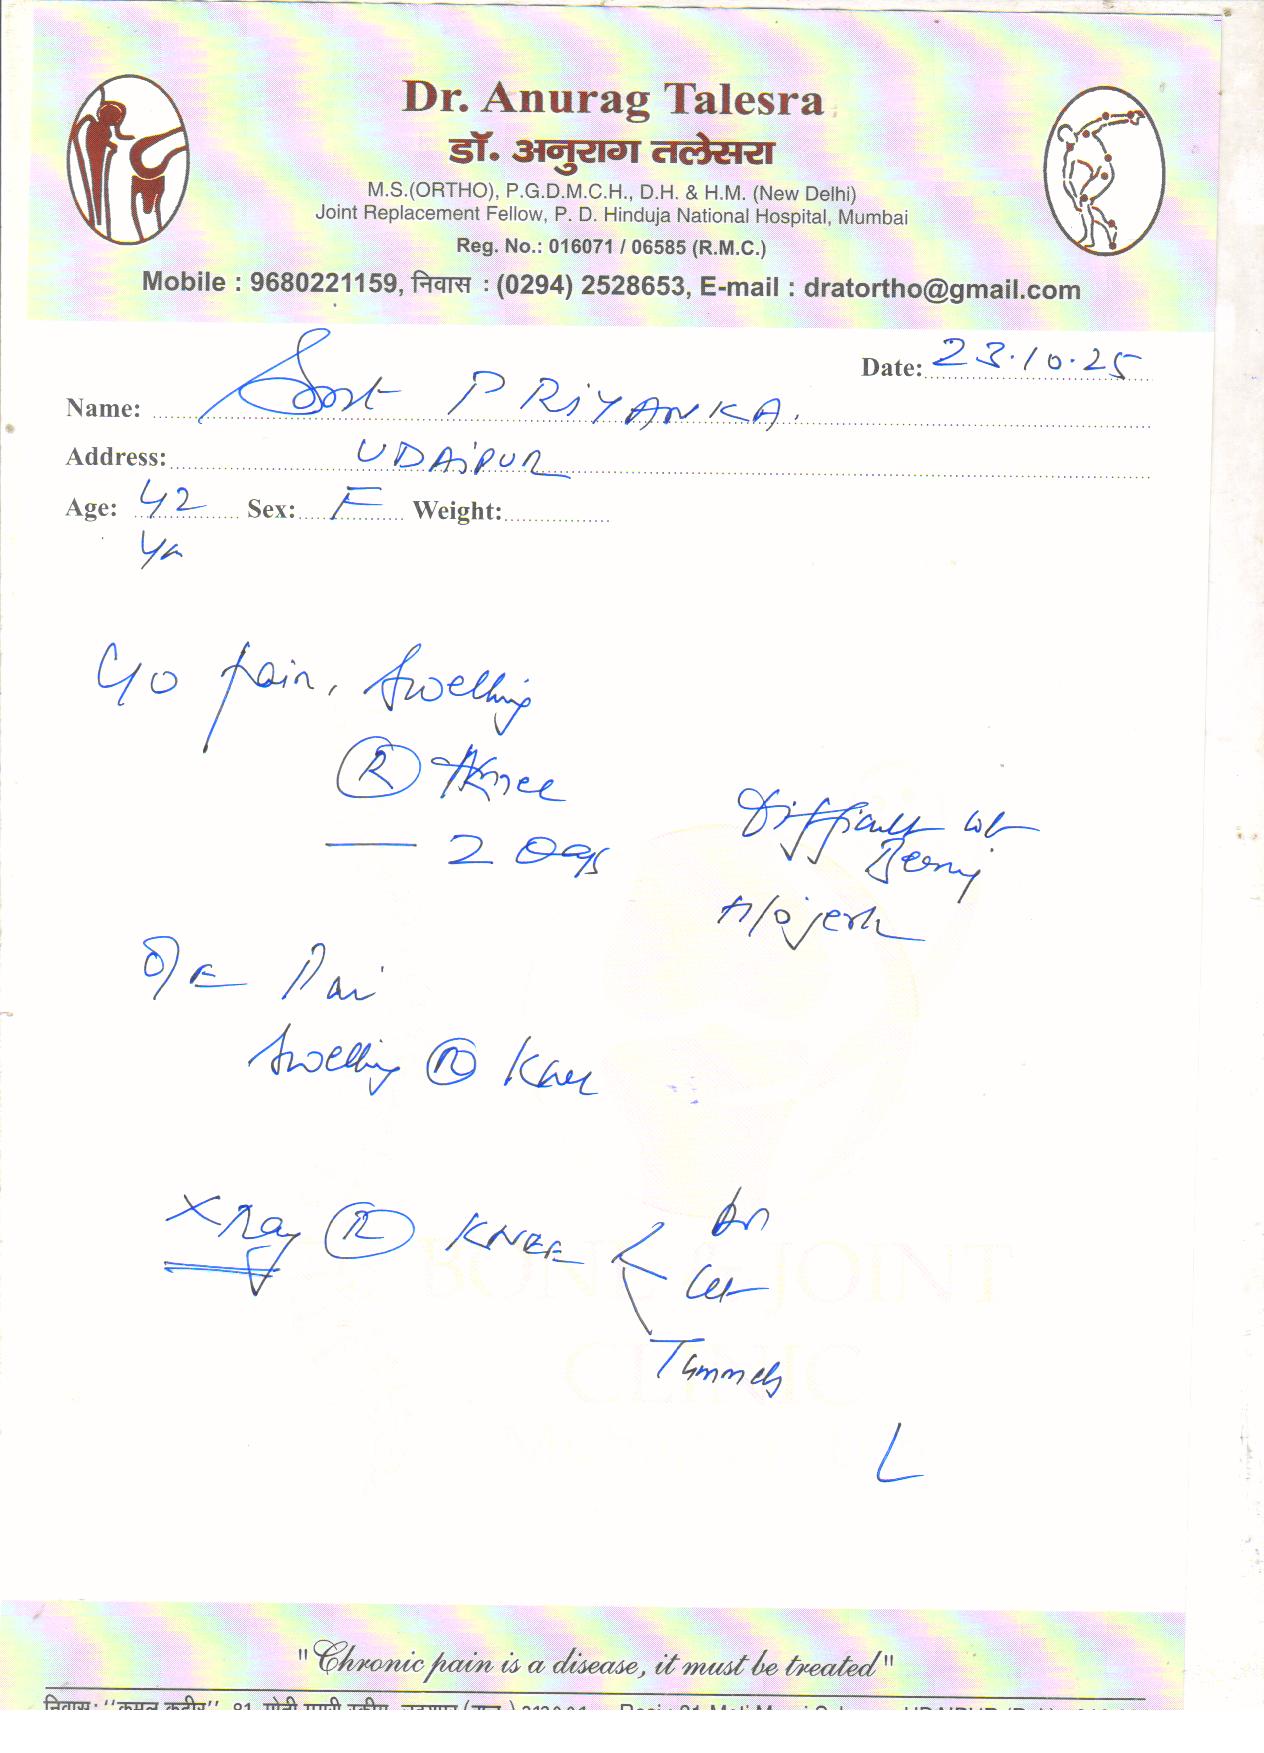 Dr. Anurag Talesra
डॉ. अनुराग तलेसरा
M.S.(ORTHO), P.G.D.M.C.H., D.H. & H.M. (New Delhi)
Joint Replacement Fellow, P. D. Hinduja National Hospital, Mumbai
Reg. No.: 016071 / 06585 (R.M.C.)
Mobile : 9680221159, निवास : (0294) 2528653, E-mail : dratortho@gmail.com
Date: 23.10.25
Name: Smt PRIYANKA.
Address: UDAIPUR
Age: 42 Sex: F Weight:
Yr
C/o pain, Swelling
(R) Knee
— 2 Days
Difficult wt
Bearing
H/o jerk
O/E Pain
Swelling (R) Knee
X Ray (R) KNEE < AP
Lat
Tunnel
BONE & JOINT
CLINIC
"Chronic pain is a disease, it must be treated"